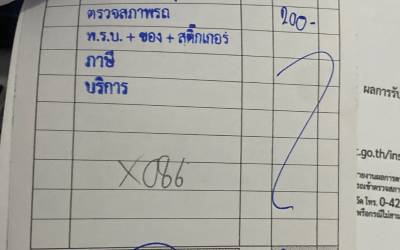 ตรวจสภาพรถ 200-
พ.ร.บ. + ซอง + สติ๊กเกอร์
ภาษี
บริการ
X086
ผลการรับ
.go.th/ins
0-42